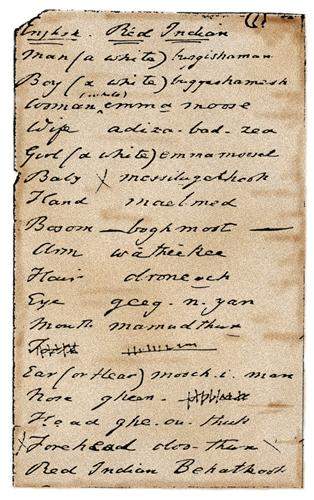 English. Red Indian
man (a white) bugishaman
Boy (a white) buggashamesh
(white)
Woman ^ emma moose
Wife adiza-bad-zea
Girl (a white) emmamoosel
Baby X messiliget-hook
Hand maelmed
Bosom — boghmoot —
Arm watheekee
Hair drone.och
Eye geeg-n-yan
Mouth mamudthun
Ear (or Hear) mosch.i.man
Nose gheen.
Head ghe.ou.thuk
X Forehead dos-thun \
Red Indian Behathook